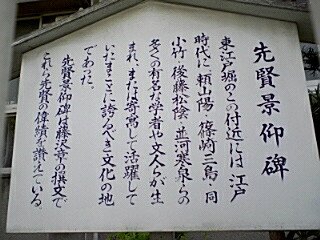 先賢景仰碑
東江戸堀のこの付近には 江戸
時代に 頼山陽・篠崎三島・同
小竹・後藤松陰・並河寒泉らの
多くの有名な学者や文人らが生
まれ、また寄寓して活躍して
いたまことに誇るべき文化の地
であった。
先賢景仰碑は藤沢章の撰文で
これら先賢の偉績を讃えている